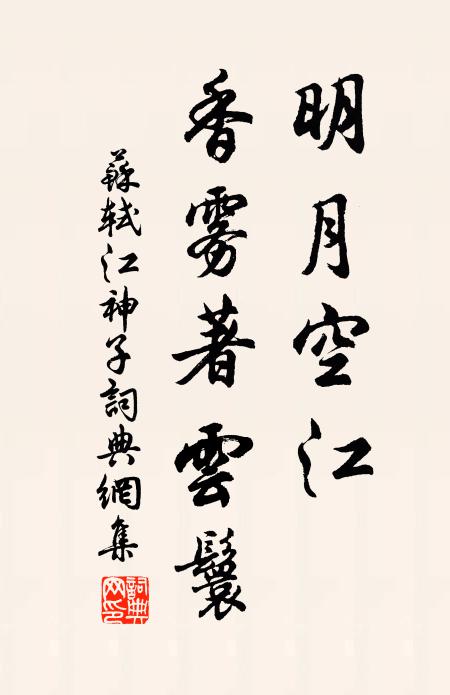 明月空江
香雾著雲鬟
蘇軾江神子詞典網集
詞典网印